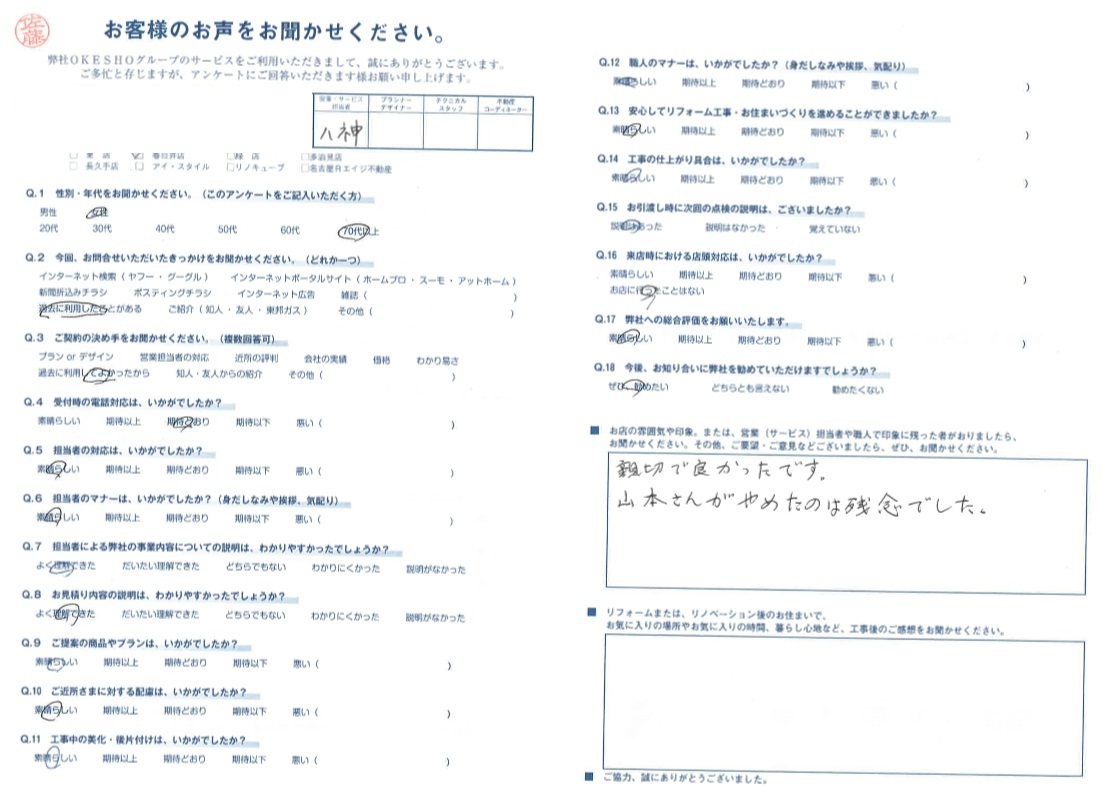 佐藤
お客様のお声をお聞かせください。
弊社OKESHOグループのサービスをご利用いただきまして、誠にありがとうございます。
ご多忙と存じますが、アンケートにご回答いただきます様お願い申し上げます。
営業・サービス担当者 プランナーデザイナー テクニカルスタッフ 不動産コーディネーター
八神
□ 東 店 ☑ 春日井店 □緑 店 □多治見店
□ 長久手店 □ アイ・スタイル □リノキューブ □名古屋日エイジ不動産
Q.1 性別・年代をお聞かせください。（このアンケートをご記入いただく方）
男性 女性
20代 30代 40代 50代 60代 70代以上
Q.2 今回、お問合せいただいたきっかけをお聞かせください。（どれか一つ）
インターネット検索（ ヤフー ・ グーグル ） インターネットポータルサイト（ ホームプロ ・ スーモ ・ アットホーム ）
新聞折込みチラシ ポスティングチラシ インターネット広告 雑誌（ ）
過去に利用したことがある ご紹介（ 知人 ・ 友人 ・ 東邦ガス ） その他（ ）
Q.3 ご契約の決め手をお聞かせください。（複数回答可）
プラン or デザイン 営業担当者の対応 近所の評判 会社の実績 価格 わかり易さ
過去に利用してよかったから 知人・友人からの紹介 その他（ ）
Q.4 受付時の電話対応は、いかがでしたか？
素晴らしい 期待以上 期待どおり 期待以下 悪い（ ）
Q.5 担当者の対応は、いかがでしたか？
素晴らしい 期待以上 期待どおり 期待以下 悪い（ ）
Q.6 担当者のマナーは、いかがでしたか？（身だしなみや挨拶、気配り）
素晴らしい 期待以上 期待どおり 期待以下 悪い（ ）
Q.7 担当者による弊社の事業内容についての説明は、わかりやすかったでしょうか？
よく理解できた だいたい理解できた どちらでもない わかりにくかった 説明がなかった
Q.8 お見積り内容の説明は、わかりやすかったでしょうか？
よく理解できた だいたい理解できた どちらでもない わかりにくかった 説明がなかった
Q.9 ご提案の商品やプランは、いかがでしたか？
素晴らしい 期待以上 期待どおり 期待以下 悪い（ ）
Q.10 ご近所さまに対する配慮は、いかがでしたか？
素晴らしい 期待以上 期待どおり 期待以下 悪い（ ）
Q.11 工事中の美化・後片付けは、いかがでしたか？
素晴らしい 期待以上 期待どおり 期待以下 悪い（ ）
Q.12 職人のマナーは、いかがでしたか？（身だしなみや挨拶、気配り）
素晴らしい 期待以上 期待どおり 期待以下 悪い（ ）
Q.13 安心してリフォーム工事・お住まいづくりを進めることができましたか？
素晴らしい 期待以上 期待どおり 期待以下 悪い（ ）
Q.14 工事の仕上がり具合は、いかがでしたか？
素晴らしい 期待以上 期待どおり 期待以下 悪い（ ）
Q.15 お引渡し時に次回の点検の説明は、ございましたか？
説明はあった 説明はなかった 覚えていない
Q.16 来店時における店頭対応は、いかがでしたか？
素晴らしい 期待以上 期待どおり 期待以下 悪い（ ）
お店に行ったことはない
Q.17 弊社への総合評価をお願いいたします。
素晴らしい 期待以上 期待どおり 期待以下 悪い（ ）
Q.18 今後、お知り合いに弊社を勧めていただけますでしょうか？
ぜひ、勧めたい どちらとも言えない 勧めたくない
■ お店の雰囲気や印象。または、営業（サービス）担当者や職人で印象に残った者がおりましたら、
お聞かせください。その他、ご要望・ご意見などございましたら、ぜひ、お聞かせください。
親切で良かったです。
山本さんがやめたのは残念でした。
■ リフォームまたは、リノベーション後のお住まいで、
お気に入りの場所やお気に入りの時間、暮らし心地など、工事後のご感想をお聞かせください。
■ ご協力、誠にありがとうございました。